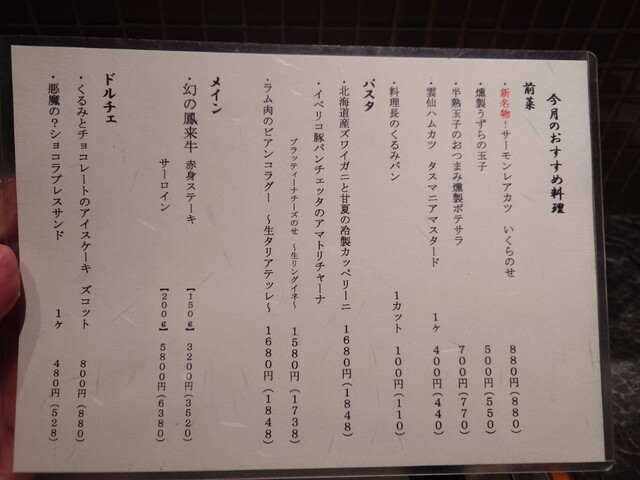 今月のおすすめ料理
前菜
・新名物!サーモンレアカツ いくらのせ 880円(880)
・燻製うずらの玉子 500円(550)
・半熟玉子のおつまみ燻製ポテサラ 700円(770)
・雲仙ハムカツ タスマニアマスタード 1ヶ 400円(440)
・料理長のくるみパン 1カット 100円(110)
パスタ
・北海道産ズワイガニと甘夏の冷製カッペリーニ 1680円(1848)
・イベリコ豚パンチェッタのアマトリチャーナ
ブラッティーナチーズのせ ～生リングイネ～ 1580円(1738)
・ラム肉のビアンコラグー ～生タリアテッレ～ 1680円(1848)
メイン
・幻の鳳来牛 赤身ステーキ 【150g】 3200円(3520)
サーロイン 【200g】 5800円(6380)
ドルチェ
・くるみとチョコレートのアイスケーキ ズコット 800円(880)
・悪魔の?ショコラブレスサンド 1ヶ 480円(528)